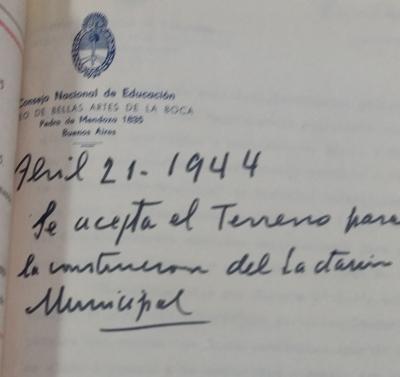 Consejo Nacional de Educación
EO DE BELLAS ARTES DE LA BOCA
Pedro de Mendoza 1835
Buenos Aires
Abril 21-1944
Se acepta el Terreno para
la construccion del Lactarium
Municipal